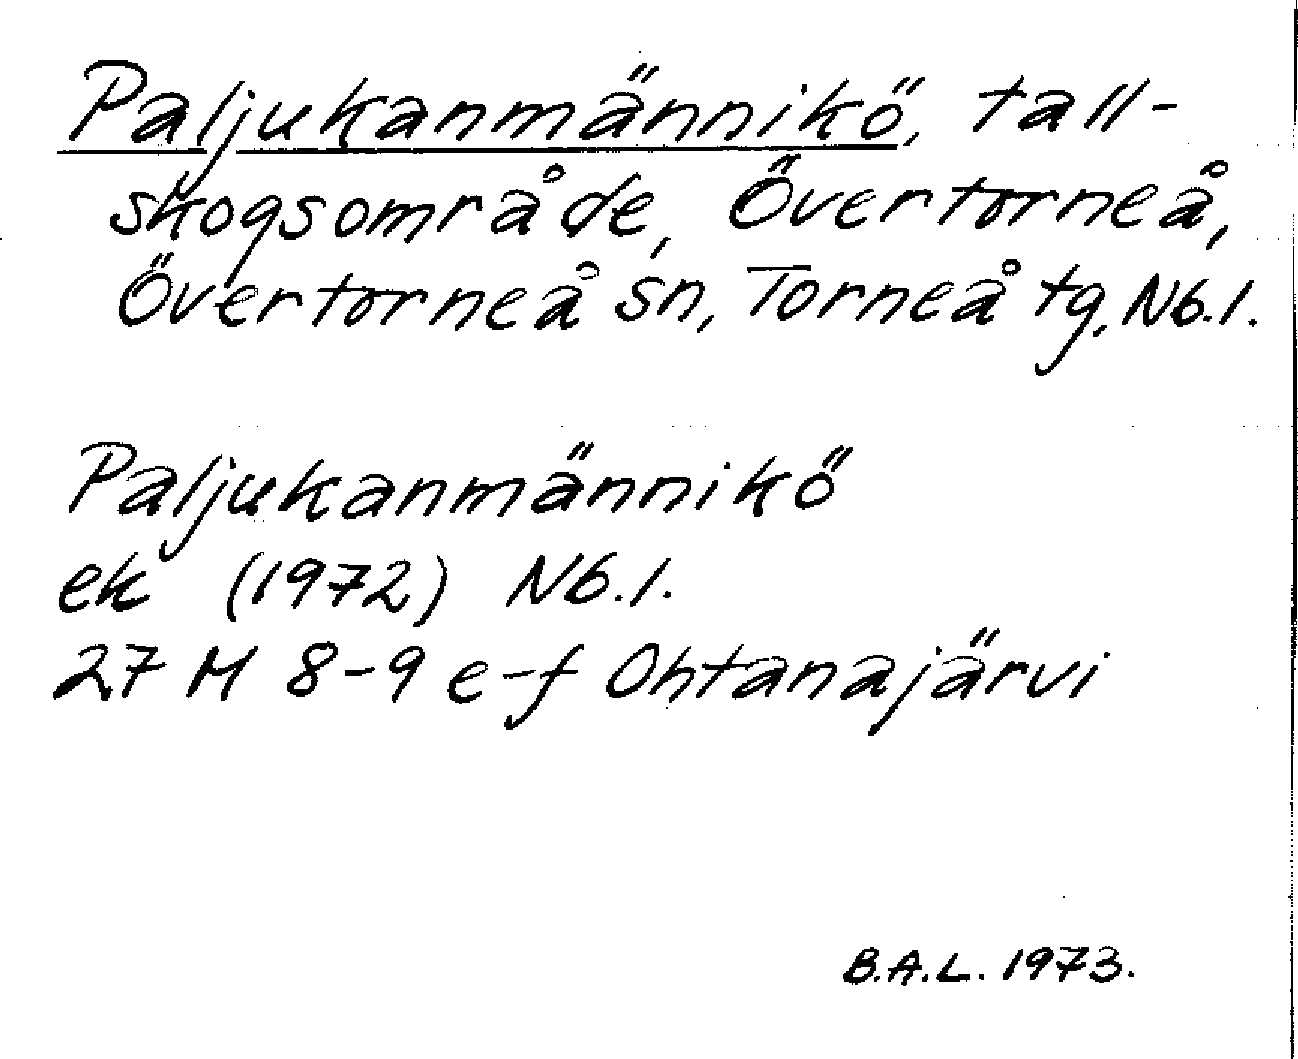 Paljukanmännikö, tall-
skogsområde, Övertorneå,
Övertorneå sn, Torneå tg, Nb.l.
Paljukanmännikö
ek (1972) Nb.l.
27 M 8-9 e-f Ohtanajärvi
B.A.L. 1973.